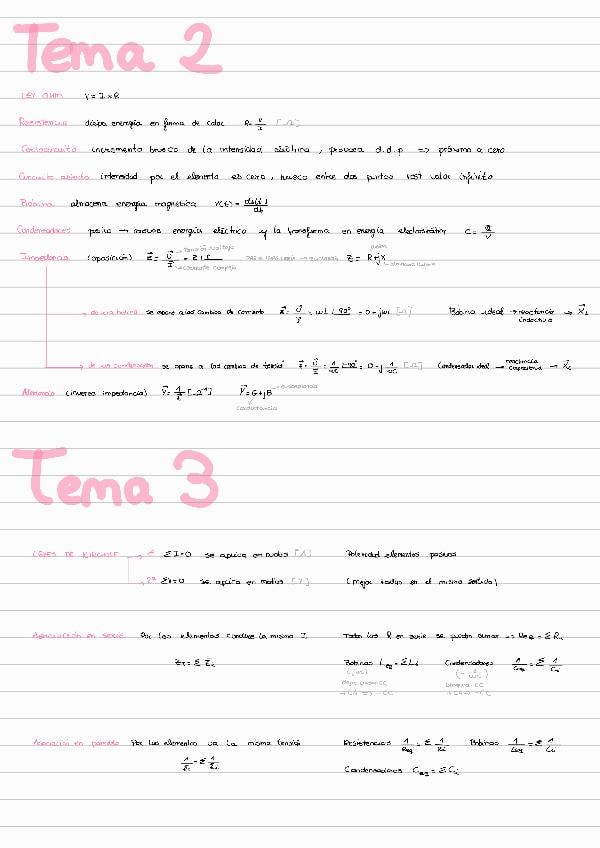 Tema 2
LEY OHM V = I × R
Resistencia disipa energía en forma de calor R = V/I [Ω]
Cortocircuito incremento brusco de la intensidad eléctrica, provoca d.d.p => próxima a cero
Circuito abierto intensidad por el elemento es cero, entre dos puntos valor infinito
Bobina almacena energía magnética
Condensadores pasivo → energía eléctrica y la transforma en energía C = Q/V
tensión/voltaje
Impedancia (oposición) Z = R + jX
corriente compleja
→ de una bobina se opone a los cambios de corriente = ωL |90° = 0 + jωL [Ω] Bobina ideal → reactancia inductiva → XL
→ de un condensador se opone a los cambios de tensión = 1/ωC |-90° = 0 - j 1/ωC [Ω] Condensador ideal → reactancia capacitiva → Xc
Admitancia (inversa impedancia) Y = 1/Z [Ω⁻¹] Y = G + jB → susceptancia
conductancia
Tema 3
LEYES DE KIRCHOFF → 1ª Σ I = 0 se aplica en nudos [A] Polaridad elementos pasivos
→ 2ª Σ V = 0 se aplica en mallas [V] (mejor todas en el mismo sentido)
Agrupación en serie Por los elementos circula la misma I Todas las R en serie se pueden sumar → Req = Σ Ri
ZT = Σ Zi Bobinas Leq = Σ Li Condensadores 1/Ceq = Σ 1/Ci
(jωL)
deja pasar CC bloquea CC
Asociación en paralelo Por los elementos va la misma tensión Resistencias 1/Req = Σ 1/Ri Bobinas 1/Leq = Σ 1/Li
Condensadores Ceq = Σ Ci